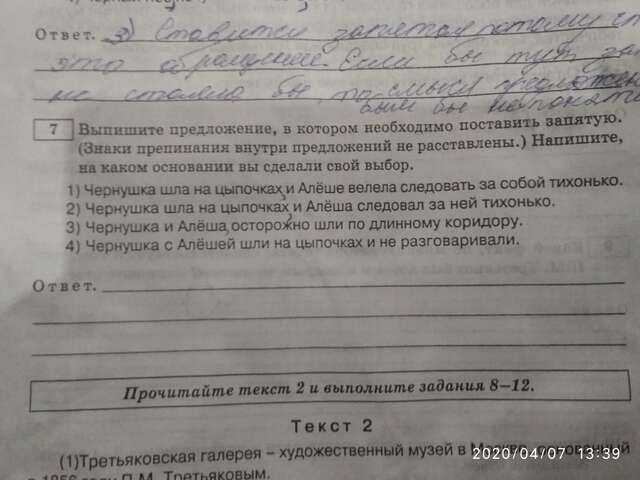 Ответ. 3) Ставится запятая потому
это обращение. Если бы тут
не стояла бы, то смысл
был бы
7 Выпишите предложение, в котором необходимо поставить запятую.
(Знаки препинания внутри предложений не расставлены.) Напишите,
на каком основании вы сделали свой выбор.
1) Чернушка шла на цыпочках, и Алёше велела следовать за собой тихонько.
2) Чернушка шла на цыпочках, и Алёша следовал за ней тихонько.
3) Чернушка и Алёша, осторожно шли по длинному коридору.
4) Чернушка с Алёшей шли на цыпочках и не разговаривали.
Ответ.
Прочитайте текст 2 и выполните задания 8–12.
Текст 2
(1)Третьяковская галерея – художественный музей в Москве, основанный
П.М. Третьяковым.
2020/04/07 13:39